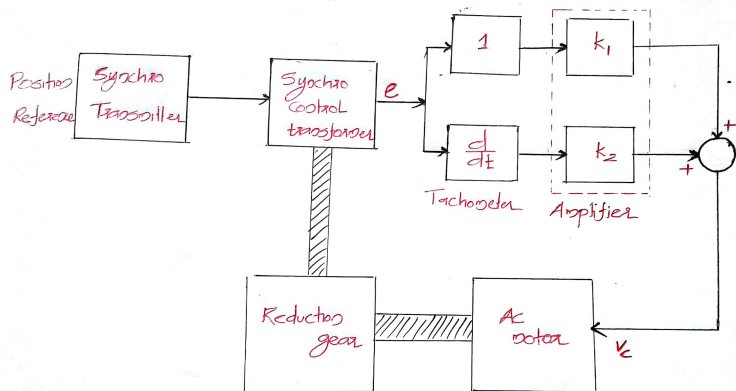 Position
Reference
Synchro
Transmitter
Synchro
control
transformer
e
1
k1
d
dt
k2
Tachometer
Amplifier
+
+
Reduction
gear
Ac
motor
Vc